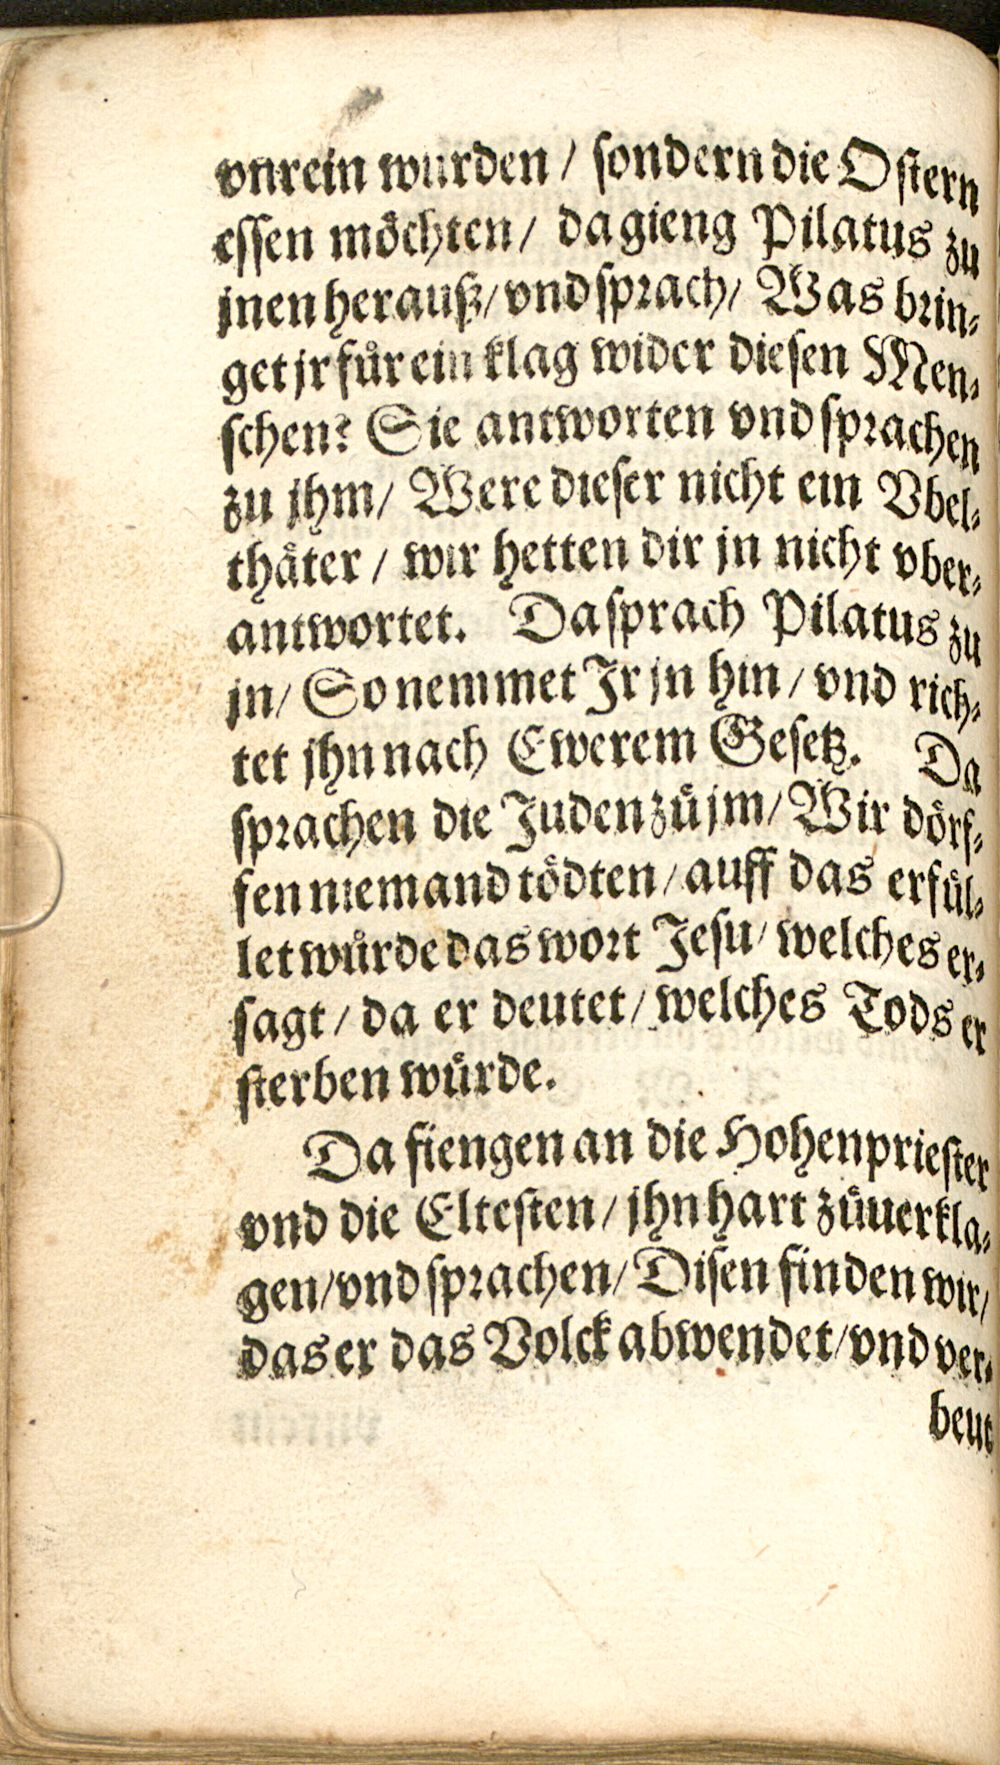 vnrein wurden / sondern die Ostern
essen möchten / da gieng Pilatus zu
jnen herauß / vnd sprach / Was brin⸗
get jr für ein klag wider diesen Men⸗
schen? Sie antworten vnd sprachen
zu jhm / Were dieser nicht ein Vbel⸗
thäter / wir hetten dir jn nicht vber⸗
antwortet. Da sprach Pilatus zu
jn / So nemmet Jr jn hin / vnd rich⸗
tet jhn nach Ewerem Gesetz. Da
sprachen die Juden zů jm / Wir dörf⸗
fen niemand tödten / auff das erfül⸗
let würde das wort Jesu / welches er⸗
sagt / da er deutet / welches Tods er
sterben würde.
Da fiengen an die Hohenpriester
vnd die Eltesten / jhn hart zůuerkla⸗
gen / vnd sprachen / Disen finden wir /
das er das Volck abwendet / vnd ver⸗
beut